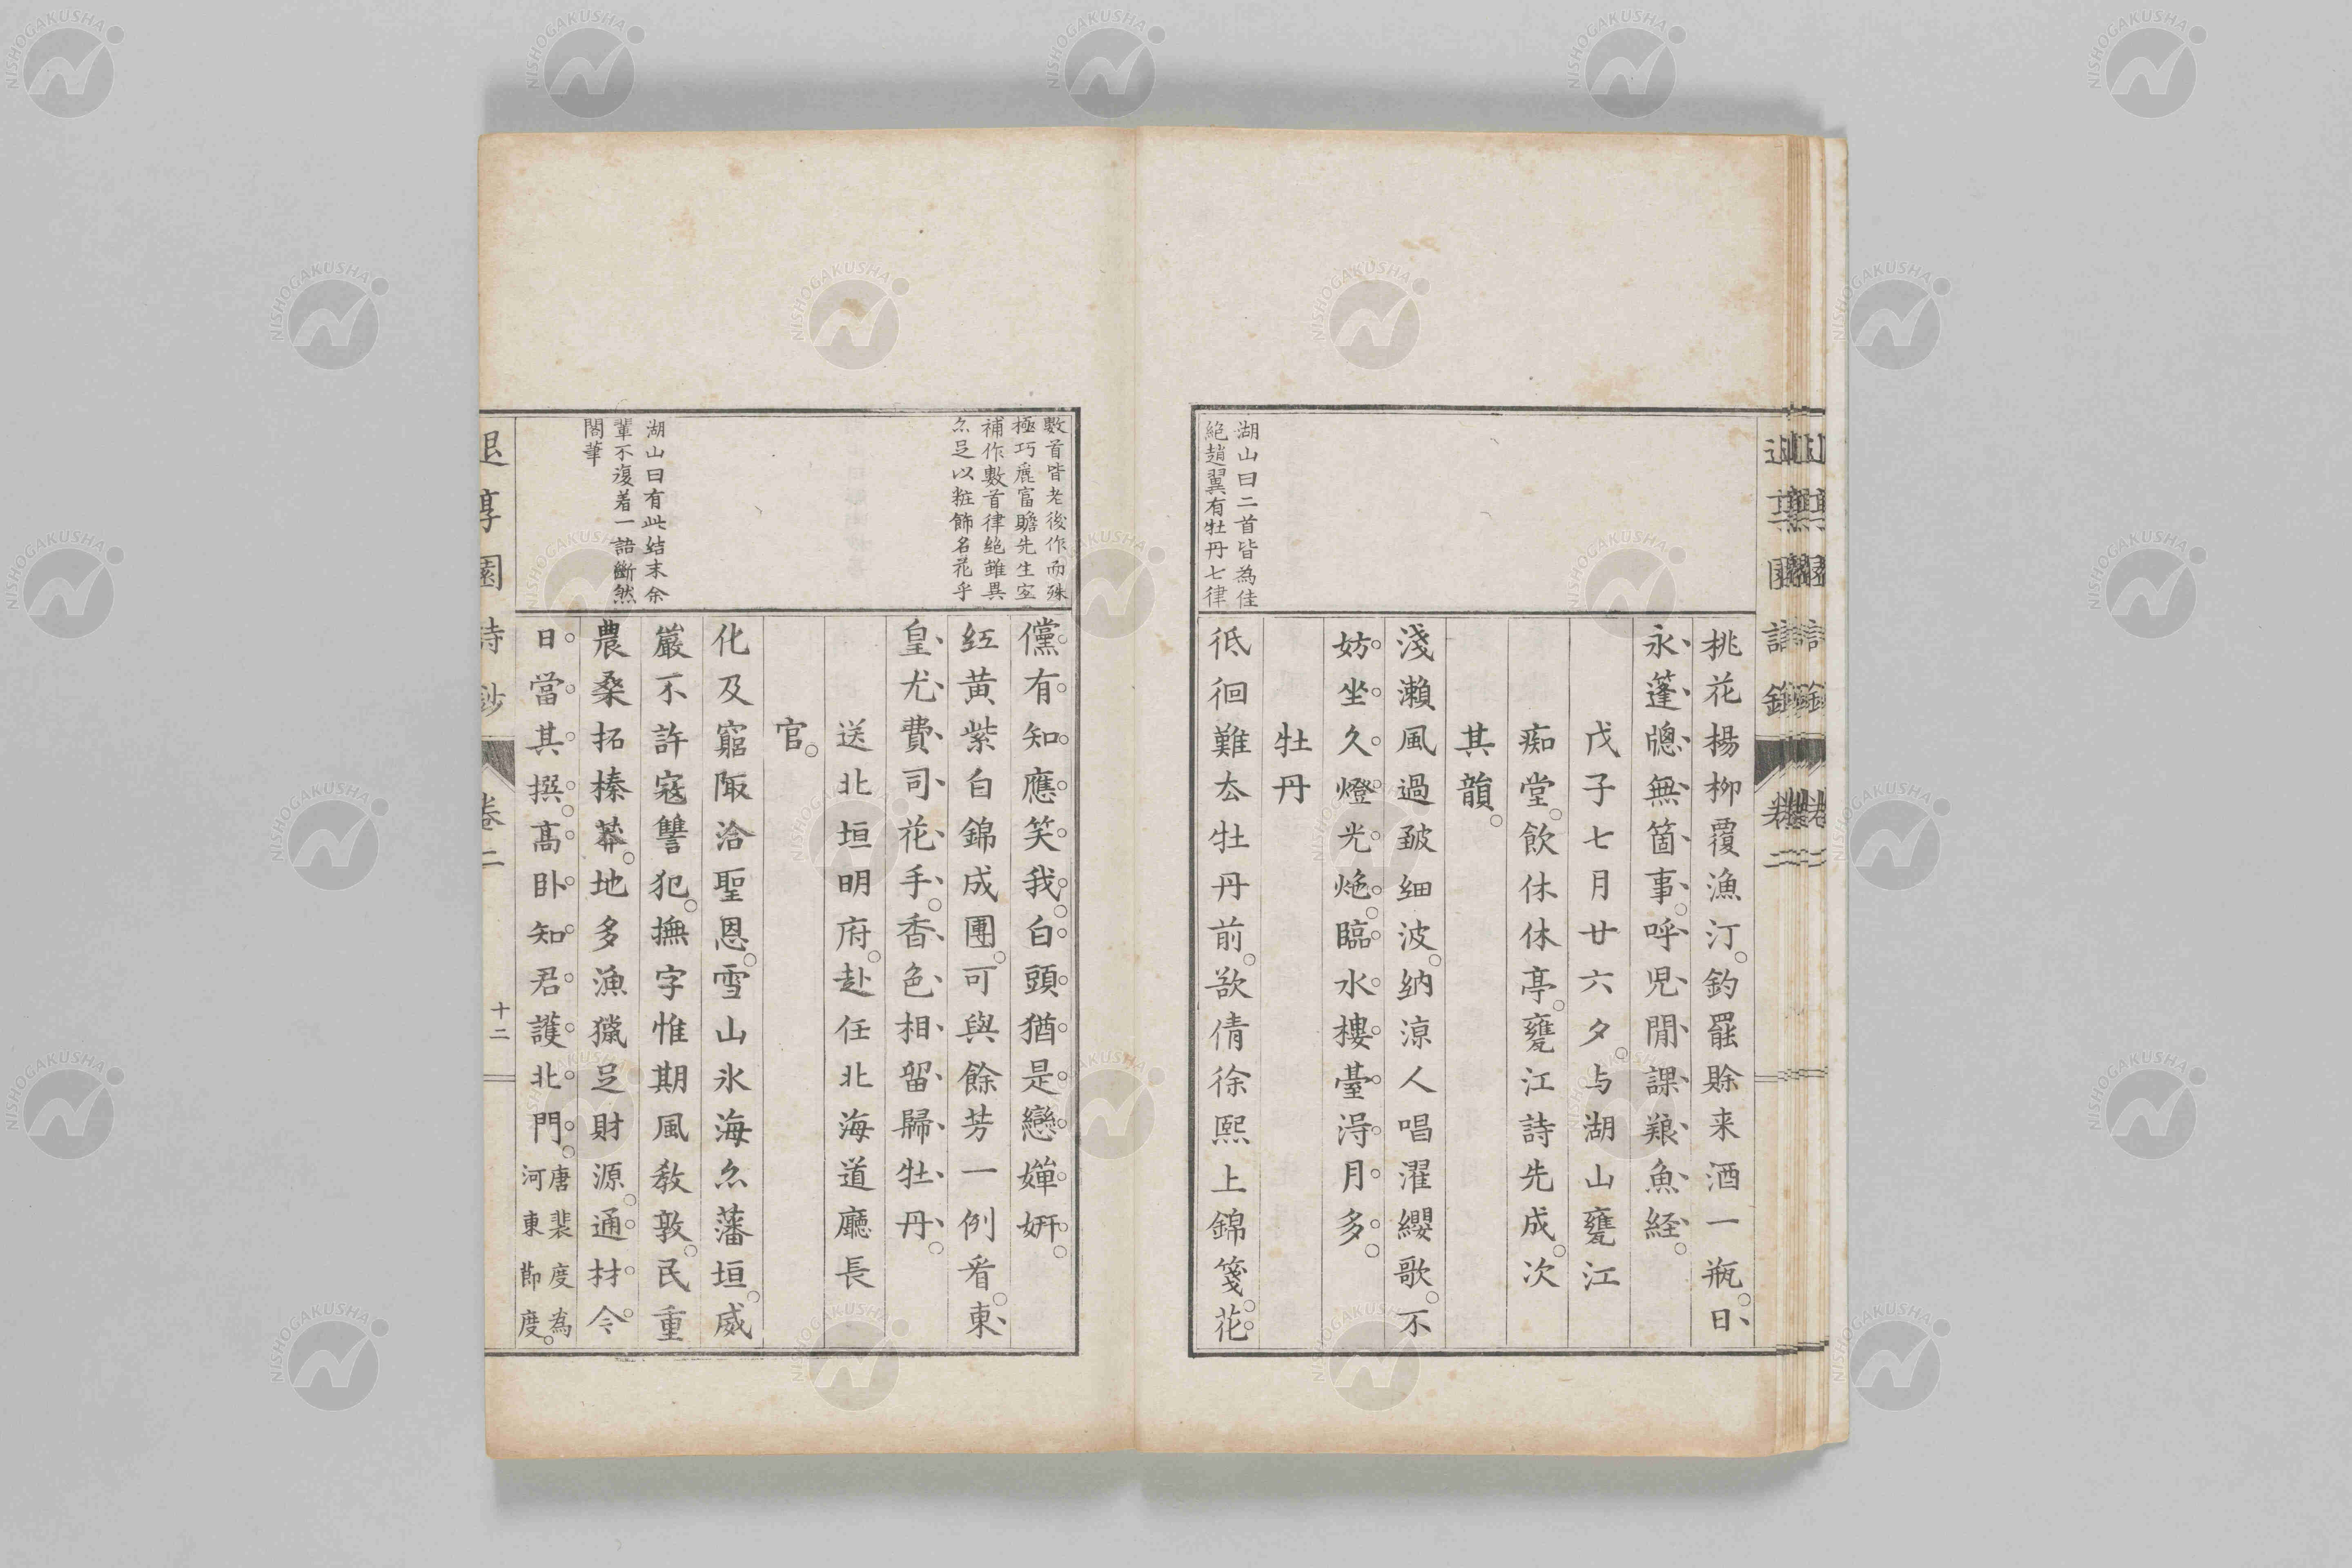 湖山曰二首皆為佳
絶趙翼有牡丹七律
桃花楊柳覆漁汀。釣罷賖来酒一瓶。日、
永、蓬、牕、無、箇、事、。呼、児、閒、課、養、魚、経、。
戊子七月廿六夕。与湖山甕江
痴堂。飲休休亭。甕江詩先成。次
其韻。
淺瀨風過皺細波。納涼人唱濯纓歌。不
妨坐久燈光炧。臨水樓臺淂月多。
牡丹
彽徊難去牡丹前。欲倩徐熙上錦箋。花
數首皆老後作而殊
極巧麗富贍先生宜
補作數首律絶雖異
亦足以粧飾名花乎
湖山曰有此結末余
輩不復着一語斷然
閣筆
儻有知應笑我。白頭猶是戀嬋妍。
紅黃紫白錦成團。可與餘芳一例看。東、
皇、尤、費、司、花、手、。香、色、相、留、歸、牡、丹、。
送北垣明府。赴任北海道廳長
官。
化及窮陬洽聖恩。雪山氷海亦藩垣。威
嚴不許寇讐犯。撫字惟期風教敦。民重
農桑拓榛莽。地多漁獵足財源。通材今
日當其撰。高卧知君護北門。唐裴度為
河東節度。
退享園詩鈔
卷二
十二